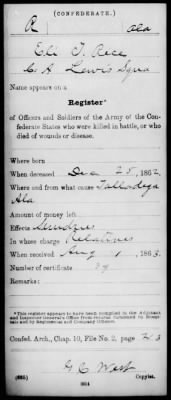 (CONFEDERATE.)
R Ala
Eli T. Rice
Co A Lewis Squa
Name appears on a
Register*
of Officers and Soldiers of the Army of the Con-
federate States who were killed in battle, or who
died of wounds or disease.
Where born
When deceased Dec 25, 1862.
Where and from what cause Talladega
Ala
Amount of money left
Effects Sundries
In whose charge Relatives
When received Aug 1, 1863.
Number of certificate
Remarks:
*This register appears to have been compiled in the Adjutant
and Inspector General's Office from returns furnished by Hospi-
tals and by Regimental and Company Officers.
Confed. Arch., Chap. 10, File No. 2, page 213
G C West
(635) Copyist.